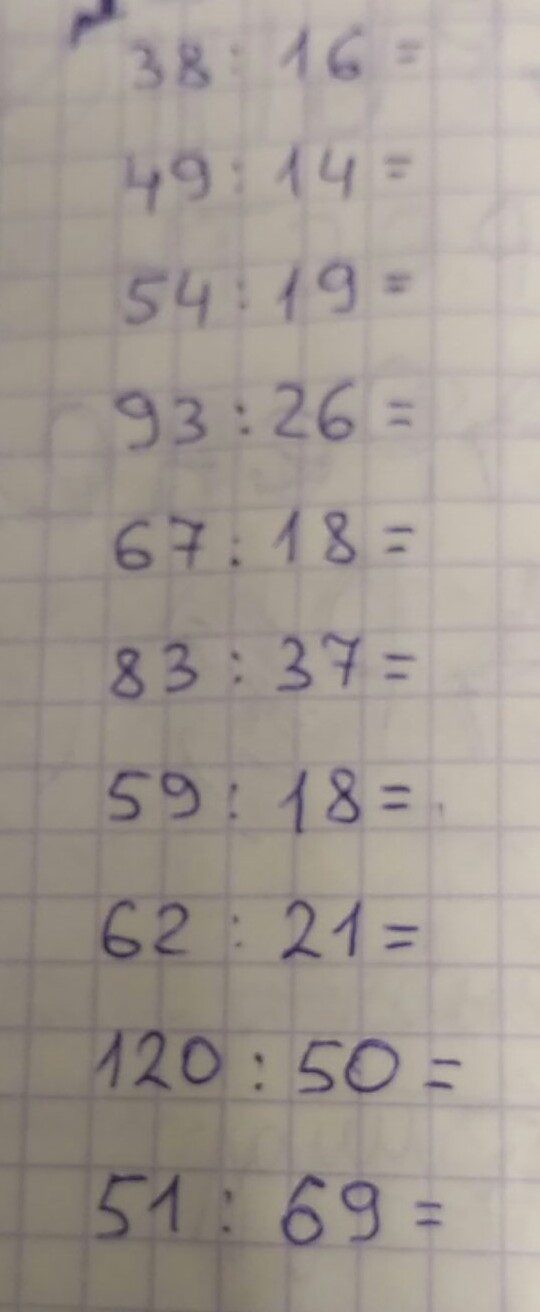 38 : 16 =
49 : 14 =
54 : 19 =
93 : 26 =
67 : 18 =
83 : 37 =
59 : 18 =
62 : 21 =
120 : 50 =
51 : 69 =